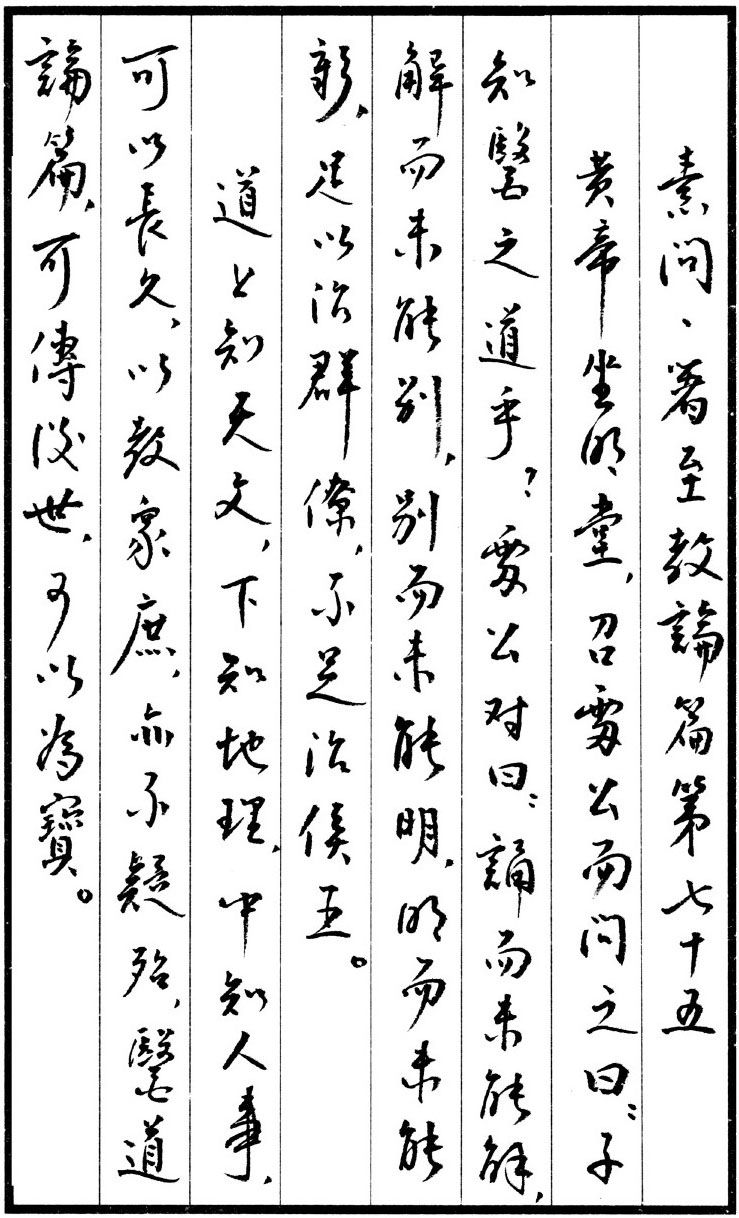 素問、著至教論篇第七十五
黄帝坐明堂，召雷公而問之曰：子
知醫之道乎？雷公对曰：誦而未能解，
解而未能别，别而未能明，明而未能
彰，足以治群僚，不足治侯王。
道上知天文，下知地理，中知人事，
可以長久，以教衆庶，亦不疑殆，醫道
論篇，可傳後世，可以為寳。